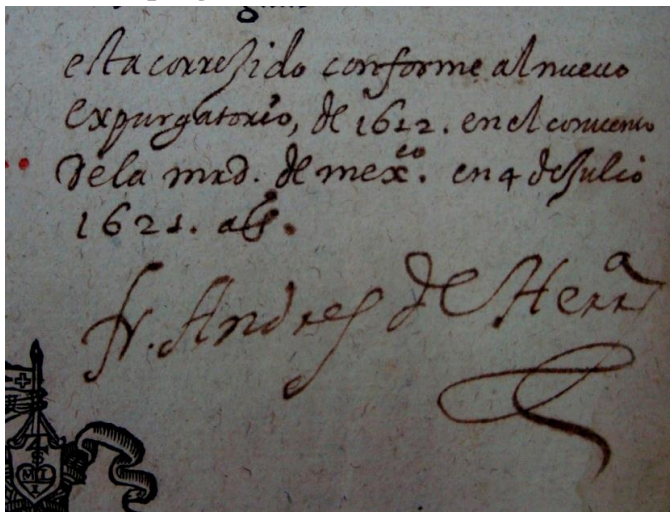 esta corregido conforme al nueuo
expurgatorio, de 1612. en el conuento
Dela mrd. de mexco. en 4 de Julio
1621. as.
fr. Andres de Herra